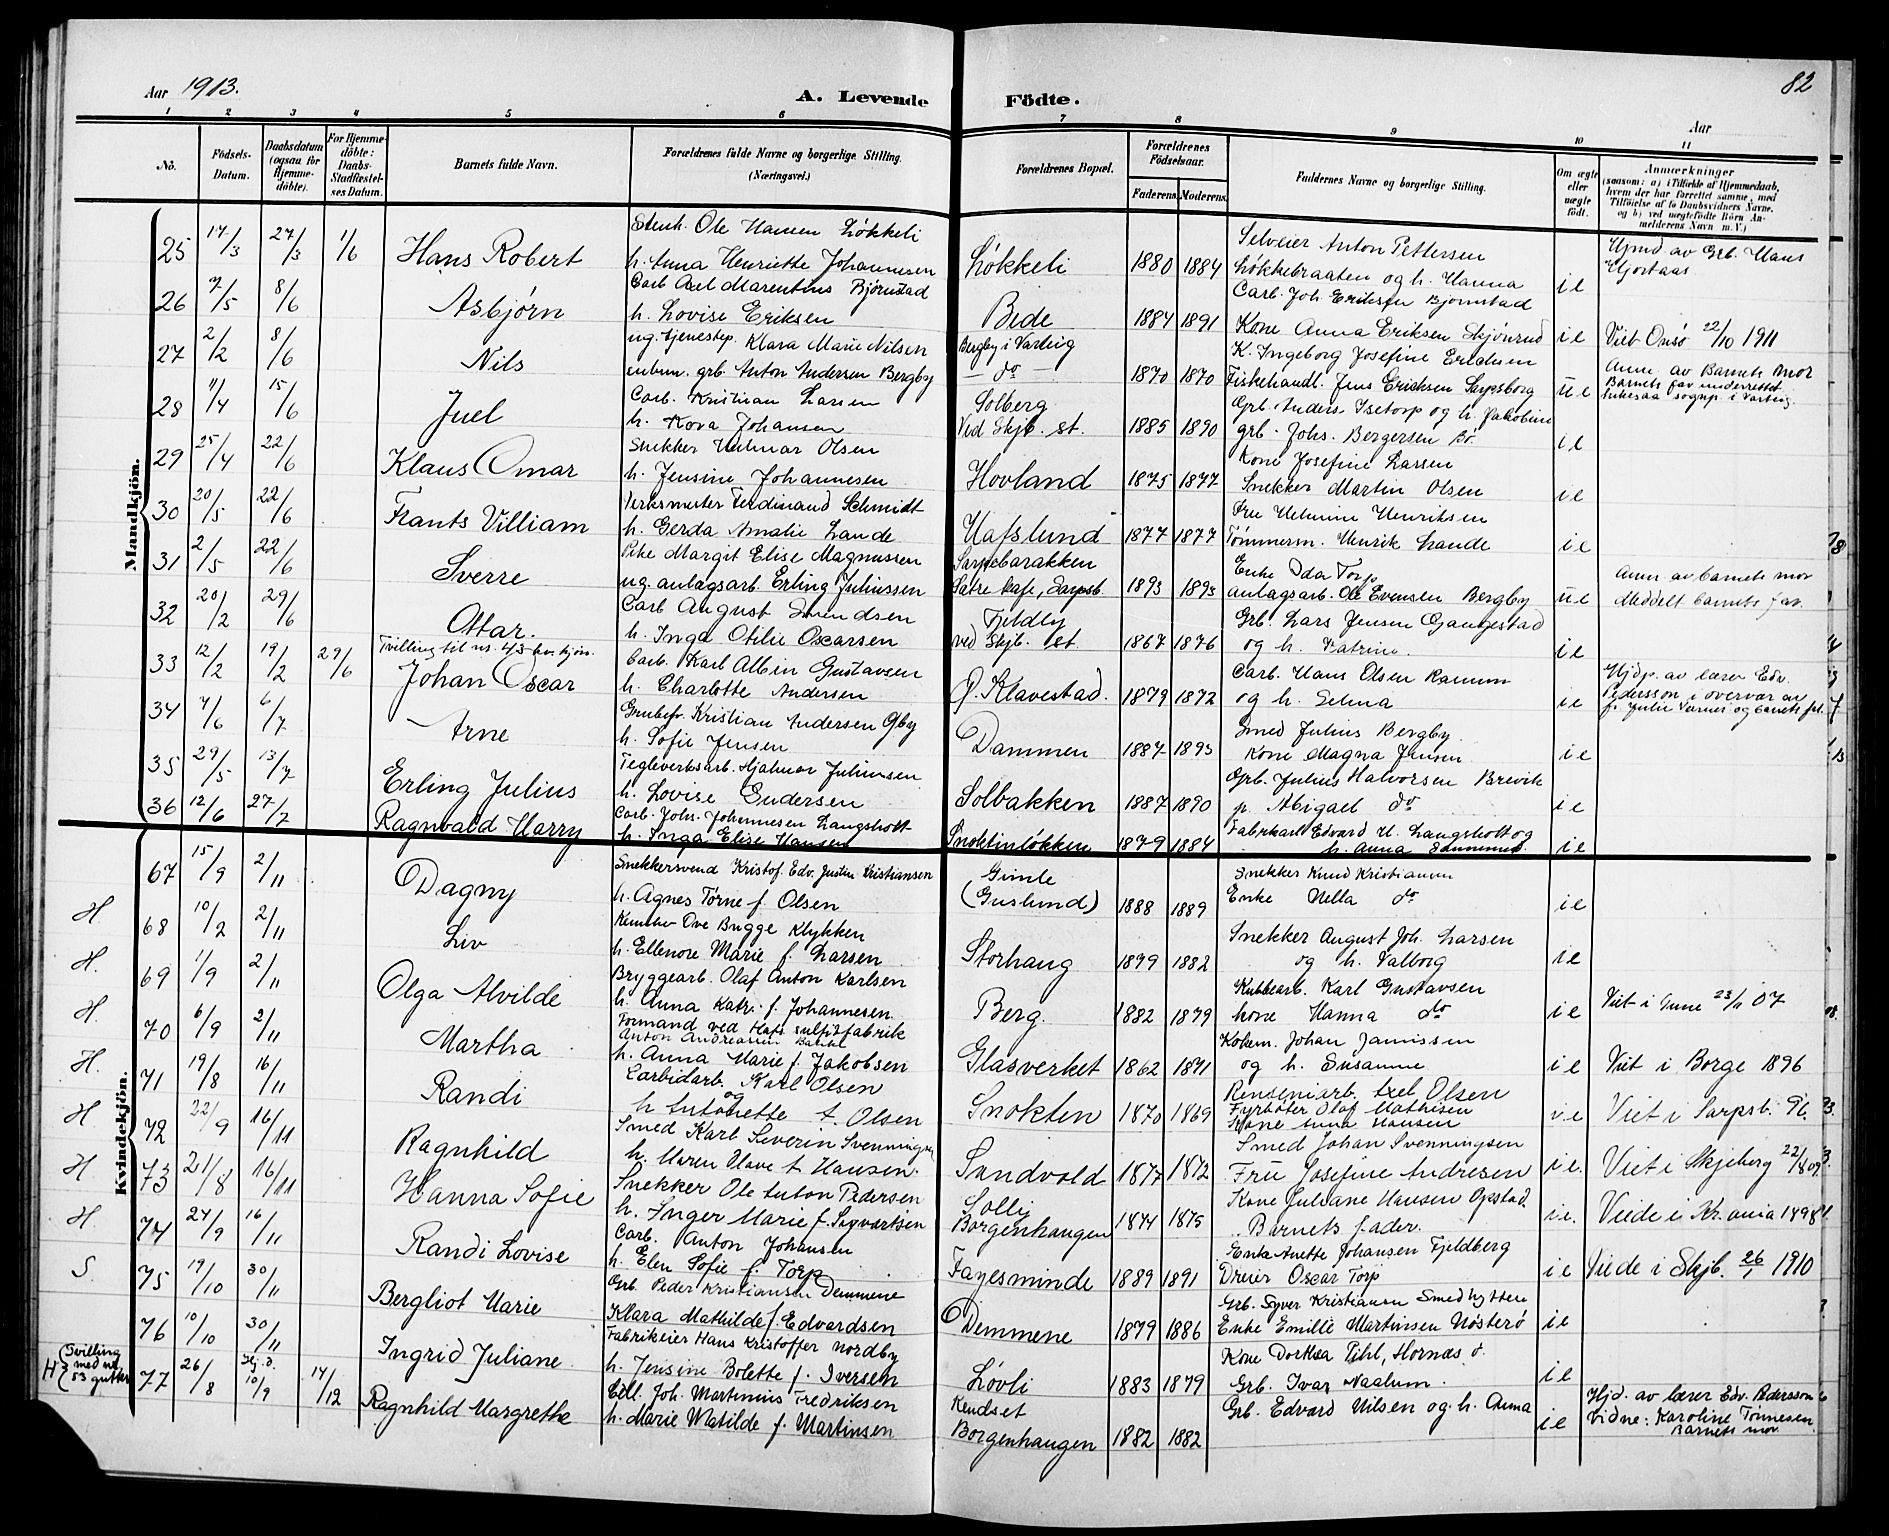 Aar 1913.
A. Levende Födte.
82
Aar
1 2 3 4 5 6 7 8 9 10 11
No.
Födsels-Datum.
Daabsdatum (ogsaa for Hjemme-döbte).
For Hjemme-döbte: Daabs-Stadfæstel-ses Datum.
Barnets fulde Navn.
Forældrenes fulde Navne og borgerlige Stilling. (Næringsvei.)
Forældrenes Bopæl.
Forældrenes Födselsaar.
Faderens. Moderens.
Faddernes Navne og borgerlige Stilling.
Om ægte eller uægte födt.
Anmærkninger
(saasom: a) i Tilfælde af Hjemmedaab, hvem der har forrettet samme, med Tilföielse af to Daabsvidners Navne, og b) ved uægtefödte Börn Anmelderens Navn m. V.)
Mandkjön.
25 17/3 27/3 1/6 Hans Robert
Ole Hansen Løkkeli
h. Anna Henriette Johannesen
Løkkeli 1880 1884
Selveier Anton Pettersen
Løkkebraaten og h. Hanna
ie
Hjmd av Grb. Hans
Hjortaas
26 7/5 8/6 Asbjørn
Carb Axel Marentius Bjørnstad
h. Lovise Eriksen
Bede 1884 1891
Carb. Joh. Eriksen Bjørnstad
Kone Anna Eriksen Skjønrud
ie Viet Onsø 22/10 1911
27 2/2 8/6 Nils
ug. tjenestep. Klara Marie Nilsen
unbm. grb Anton Andersen Bergby
Bergby i Varteig
— do — 1870 1870
K. Ingeborg Josefine Eriksen
Fiskehandl. Jens Eriksen Sarpsborg
ue
Anm. av Barnets Mor
Barnets far underrettet
sognp. i Varteig.
28 11/4 15/6 Juel
Carb. Kristian Larsen
h. Kova Johansen
Solberg
Ved Skjb. st. 1885 1890
Grb. Anders Isetorp og h. Jakobine
grb. Johs. Bergersen Bø.
ie
29 25/4 22/6 Klaus Omar
Snekker Hilmar Olsen
h. Jensine Johannesen
Hovland 1875 1877
Kone Josefine Larsen
Snekker Martin Olsen
ie
30 20/5 22/6 Frants Villiam
Verksmester Ferdinand Schmidt
h. Gerda Amalie Lande
Hafslund 1877 1877
Fru Helmine Henriksen
Tømmerm. Henrik Lande
ie
31 2/5 22/6 Sverre
Pike Margit Elise Magnussen
ug. anlægsarb. Erling Juliussen
Sarpebarakken
Sætre kafe, Sarpsb. 1893 1893
Enke Ida Torp
anlagsarb. Ole Evensen Bergby
ue
Anm av barnets mor
Meddelt barnets far.
32 20/2 29/6 Ottar.
Carb August Svendsen
h. Inga Otilie Oscarsen
Fjeldly
ved Skjb. st. 1867 1876
Grb. Lars Jensen Gangestad
og h. Katrine.
ie
33 12/2 19/2 29/6
Tvilling til nr. 43 kv. kjøn.
Johan Oscar
Carb. Karl Albin Gustavsen
h. Charlotte Andersen
Ø. Klavestad. 1879 1872
Carb. Hans Olsen Ramm
og h. Selma
ie
Hjdp. av lærer Edv.
Pedersson i overvær av
fr. Julie Varnes og barnets far.
34 7/6 6/7 Arne
Grubefr. Kristian Andersen Opby
h. Sofie Jensen
Dammen 1887 1893
Smed Julius Bergby.
Kone Magna Jensen
ie
35 29/5 13/7 Erling Julius
Teglverksarb. Hjalmar Juliussen
h. Lovise Gudersen
Solbakken 1887 1890
Grb. Julius Halvorsen Brevik
p. Abigael do
ie
36 12/6 27/7 Ragnvald Harry
Carb. Johs. Johannesen Langsholt
h. Inga Elise Hansen
Snoktinløkken 1879 1884
Fabrkarl Edvard H. Langsholt og
h. Anna
ie
Kvindekjön.
67 15/9 2/11 Dagny
Snekkersvend Kristof. Edv. Justin Kristiansen
h. Agnes Tørne f. Olsen
Gimle
(Guslund) 1888 1889
Snekker Knud Kristiansen
Enke Hella do
ie
H 68 10/2 2/11 Liv
Kemiker Ove Bugge Klykken
h. Ellenore Marie f. Larsen
Storhaug 1879 1882
Snekker August Joh. Larsen
og h. Valborg
ie
H. 69 1/9 2/11 Olga Alvilde
Bryggearb. Olaf Anton Karlsen
h. Anna Katr. f. Johannesen.
Berg. 1882 1879
Kubbearb. Karl Gustavsen
kone Hanna do
ie Viet i Tune 23/11 07
H. 70 6/9 2/11 Martha
Formand ved Hafs sulfitfabrik
Anton Andreassen
h. Anna Marie f. Jakobsen
Glasverket 1862 1871
Kobem. Johan Jamissen
og h. Susanne
ie Viet i Borge 1896
H. 71 19/8 16/11 Randi
Carbidarb. Karl Olsen
og
h Antonette f. Olsen
Snokten 1870 1869
Renseriarb. Axel Olsen
Fyrbøter Olaf Mathisen
Kone Anna Hansen
ie Viet i Sarpsb. 96.
H 72 22/9 16/11 Ragnhild
Smed Karl Severin Svenningsen
h. Maren Have f Hansen.
Sandvold 1877 1872
Smed Johan Svenningsen
Fru Josefine Andresen
ie. Viet i Skjeberg 22/8 09.
H 73 21/8 16/11 Hanna Sofie
Snekker Ole Anton Pedersen
h. Inger Marie f. Sigvartsen
Solli
Borgenhaugen 1874 1875
Kone Juliane Hansen Opstad.
Barnets fader.
ie. Viede i Kr.ania 1898
H. 74 24/9 16/11 Randi Lovise
Carb. Anton Johansen
h. Elen Sofie f. Torp
Fayesminde 1889 1891
Enke Anette Johansen Fjeldberg
Dreier Oscar Torp
ie Viede i Skjb. 26/1 1910
S. 75 19/10 30/11 Bergliot Marie
Grb. Peder Kristiansen Demmene
Klara Mathilde f. Edvardsen
Demmene 1879 1886
Grb. Syver Kristiansen Smedhytten
Enke Emilie Martinsen Nøsterø
ie
76 10/10 30/11 Ingrid Juliane
Fabrikeier Hans Kristoffer Nordby
h. Jensine Bolette f. Iversen
Løvli 1883 1879
Kone Dorthea Pihl, Hornæs ø.
Grb. Ivar Naalum.
ie
H (Tvilling med nr. 53 gutter 77 26/8 Hj.d. 10/9 14/12 Ragnhild Margrethe
Cell. Joh. Martinius Fredriksen
h. Marie Matilde f. Martinsen
Kendset
Borgenhaugen 1882 1882
Grb. Edvard Nilsen og h. Anna
ie
Hjd. av lærer Edv. Pedersson
Vidne: Karoline Tønnesen
Barnets mor